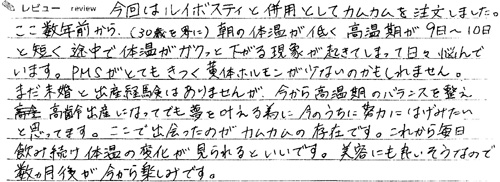 レビュー review 今回はルイボスティと併用としてカムカムを注文しました。
ここ数年前から、(30歳を界に) 朝の体温が低く高温期が9日〜10日
と短く途中で体温がガクッと下がる現象が起きてしまって日々悩んで
います。PMSがとてもきつく黄体ホルモンが少ないのかもしれません。
まだ未婚と出産経験はありませんが、今から高温期のバランスを整え
高齢出産になってでも夢を叶える為に今のうちに努力にはげみたい
と思ってます。ここで出会ったのがカムカムの存在です。これから毎日
飲み続け体温の変化が見られるといいです。美容にも良いそうなので
数ヵ月後が今から楽しみです。